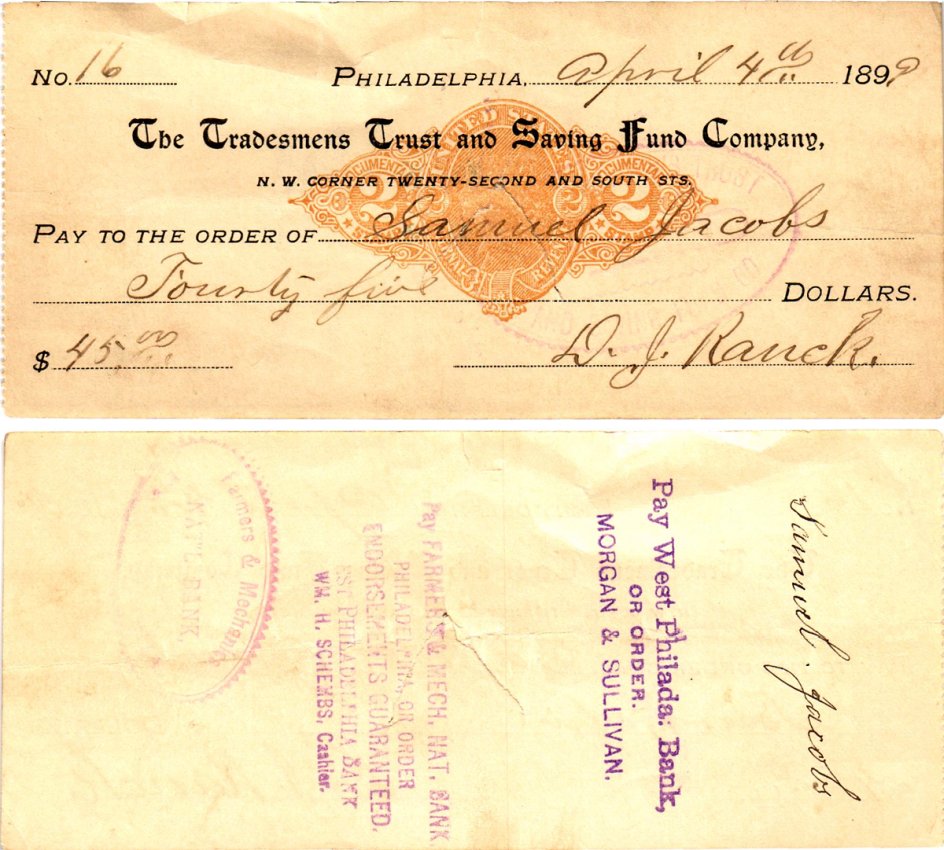 No. 16 PHILADELPHIA, April 4th 1899
The Tradesmens Trust and Saving Fund Company,
N. W. CORNER TWENTY-SECOND AND SOUTH STS.
UNITED STATES
DOCUMENTARY DOCUMENTARY
2 2
PAY TO THE ORDER OF Samuel Jacobs
Fourty five DOLLARS.
$ 45.00 D. J. Ranck.
Samuel Jacobs
Pay West Philada: Bank,
OR ORDER.
MORGAN & SULLIVAN.
Pay FARMER'S & MECH. NAT. BANK
PHILADELPHIA, OR ORDER
ENDORSEMENTS GUARANTEED.
WEST PHILADELPHIA BANK
WM. H. SCHEMBS, Cashier.
Farmers & Mechanics
NAT'L BANK